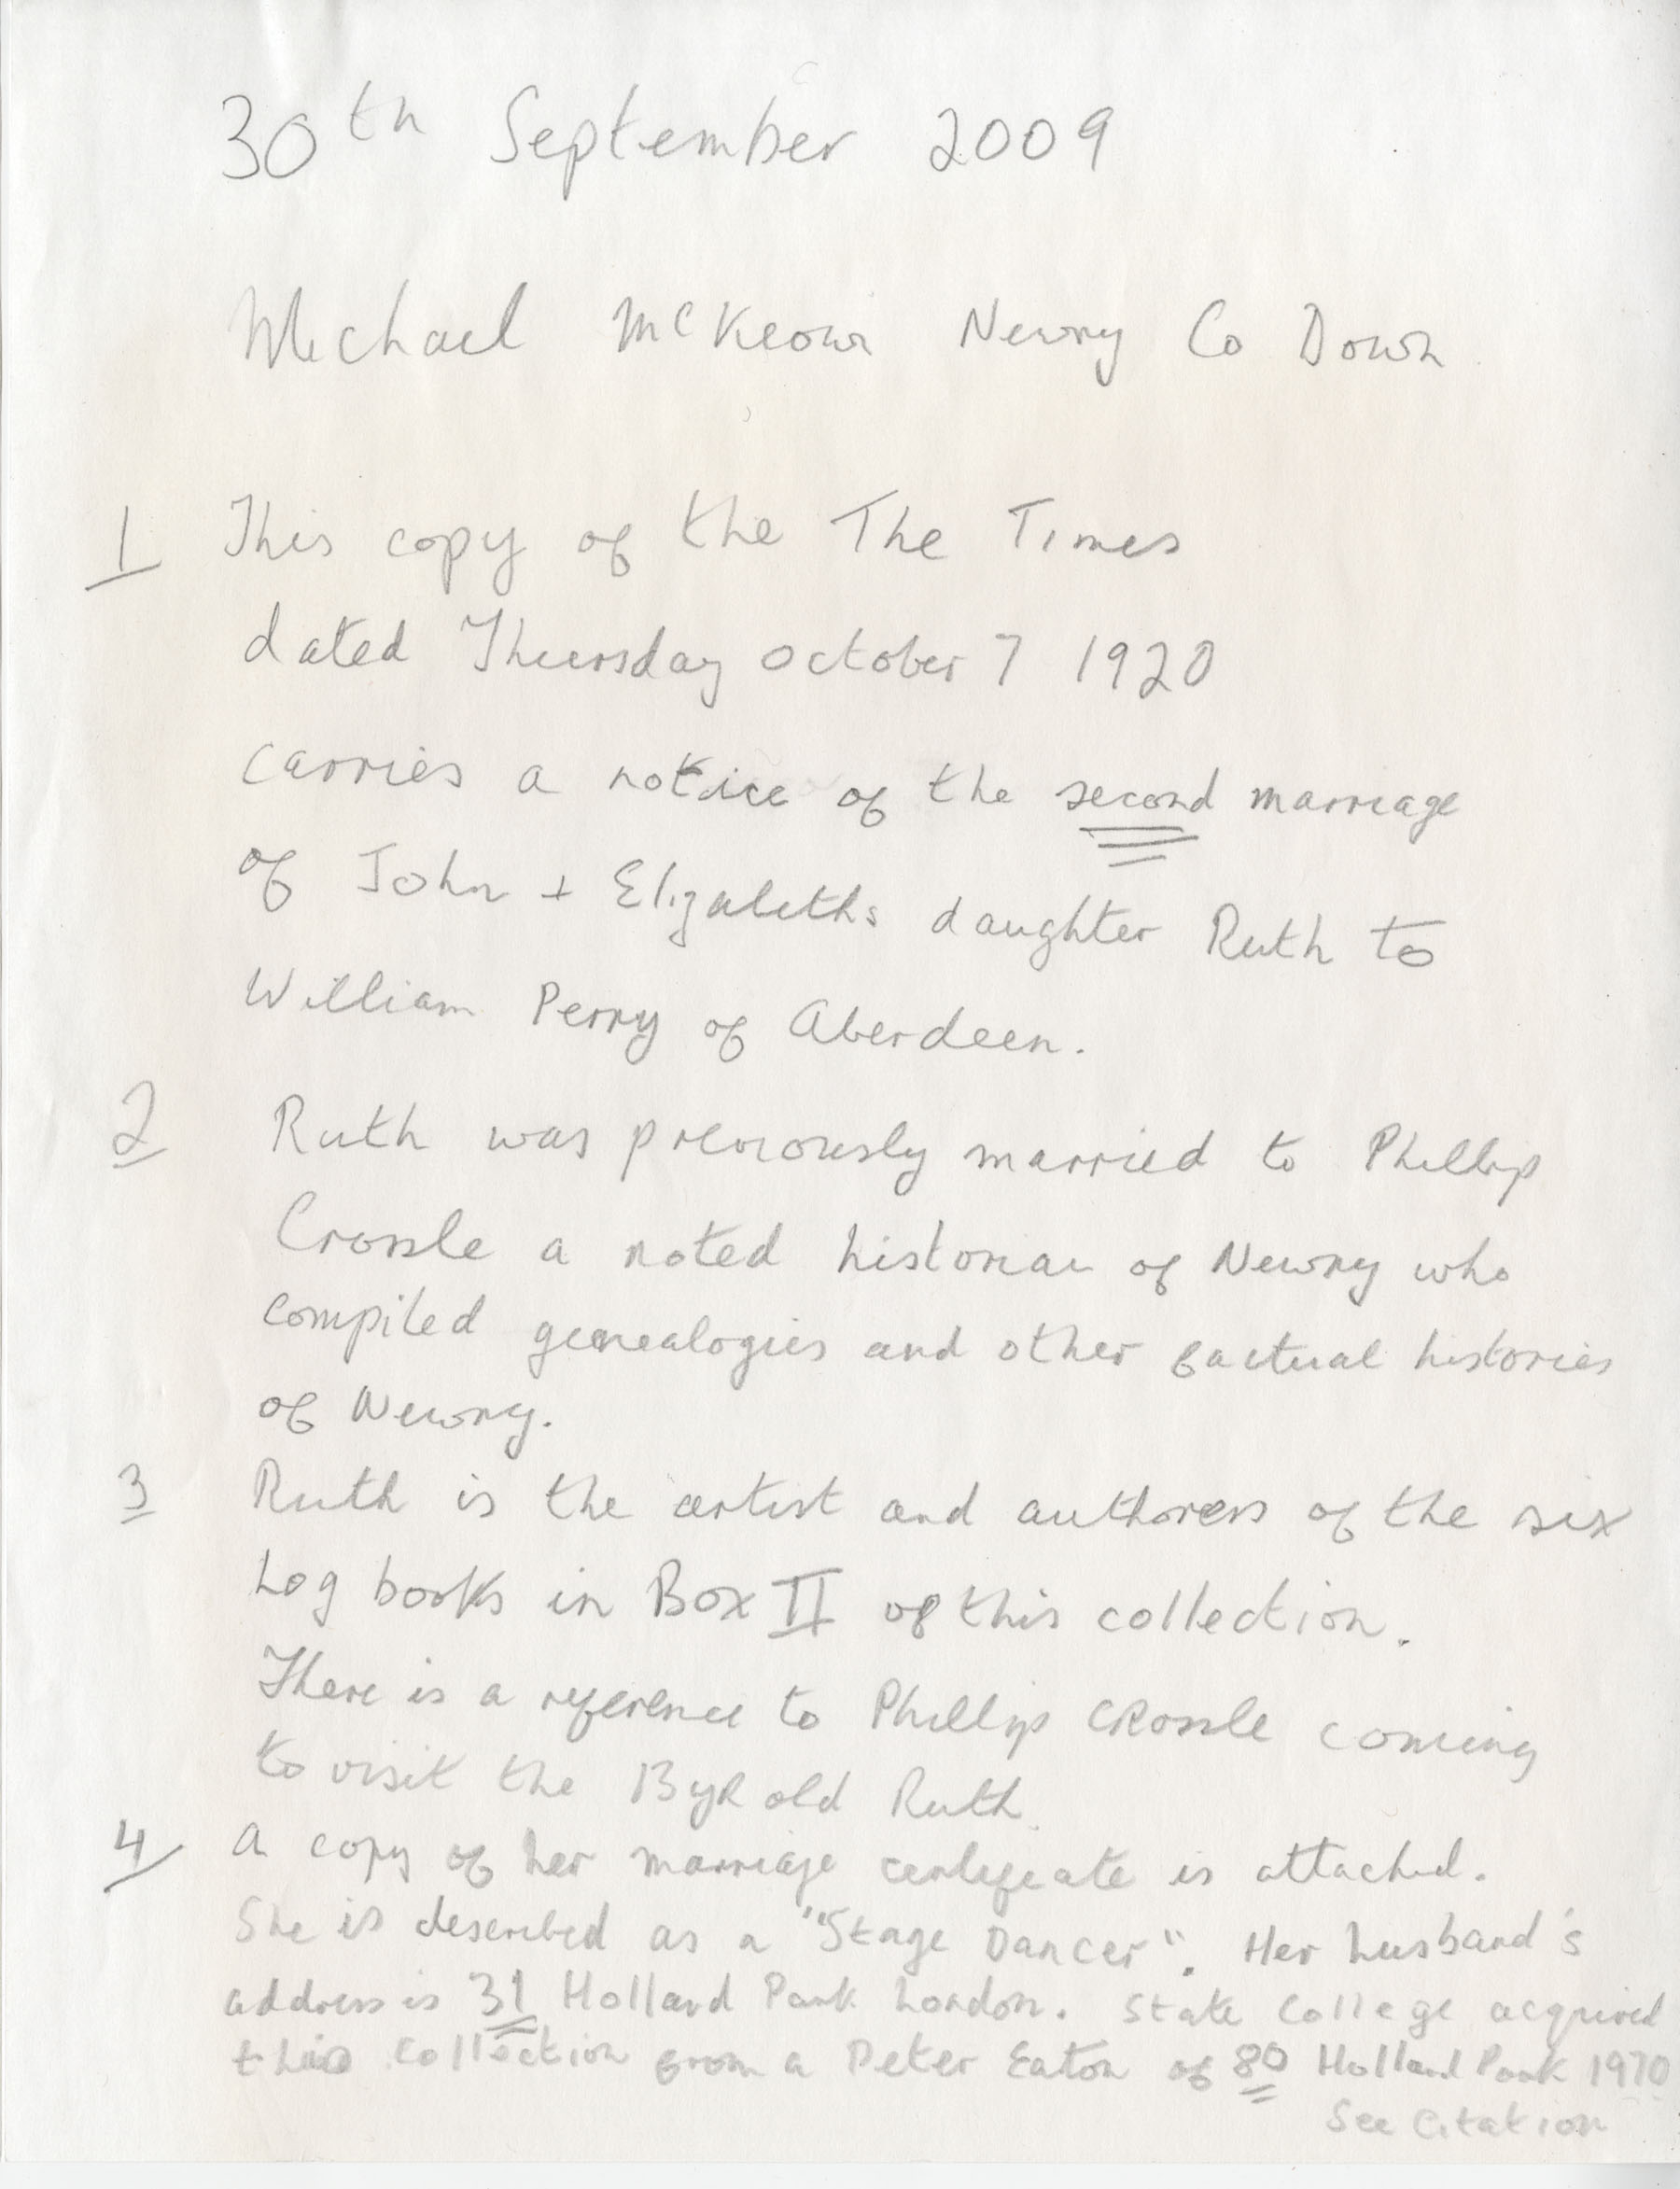 30th September 2009
Michael McKeown Newry Co Down
1 This copy of the The Times
dated Thursday October 7 1920
carries a notice of the second marriage
of John + Elizabeths daughter Ruth to
William Perry of Aberdeen.
2 Ruth was previously married to Phillip
Crossle a noted historian of Newry who
compiled genealogies and other factual histories
of Newry.
3 Ruth is the artist and authoress of the six
Log books in Box II of this collection.
There is a reference to Phillip CRossle coming
to visit the 13 yR old Ruth.
4 A copy of her marriage certificate is attached.
She is described as a "Stage Dancer". Her husband's
address is 31 Holland Park London. State College acquired
this collection from a Peter Eaton of 80 Holland Park 1970
See Citation